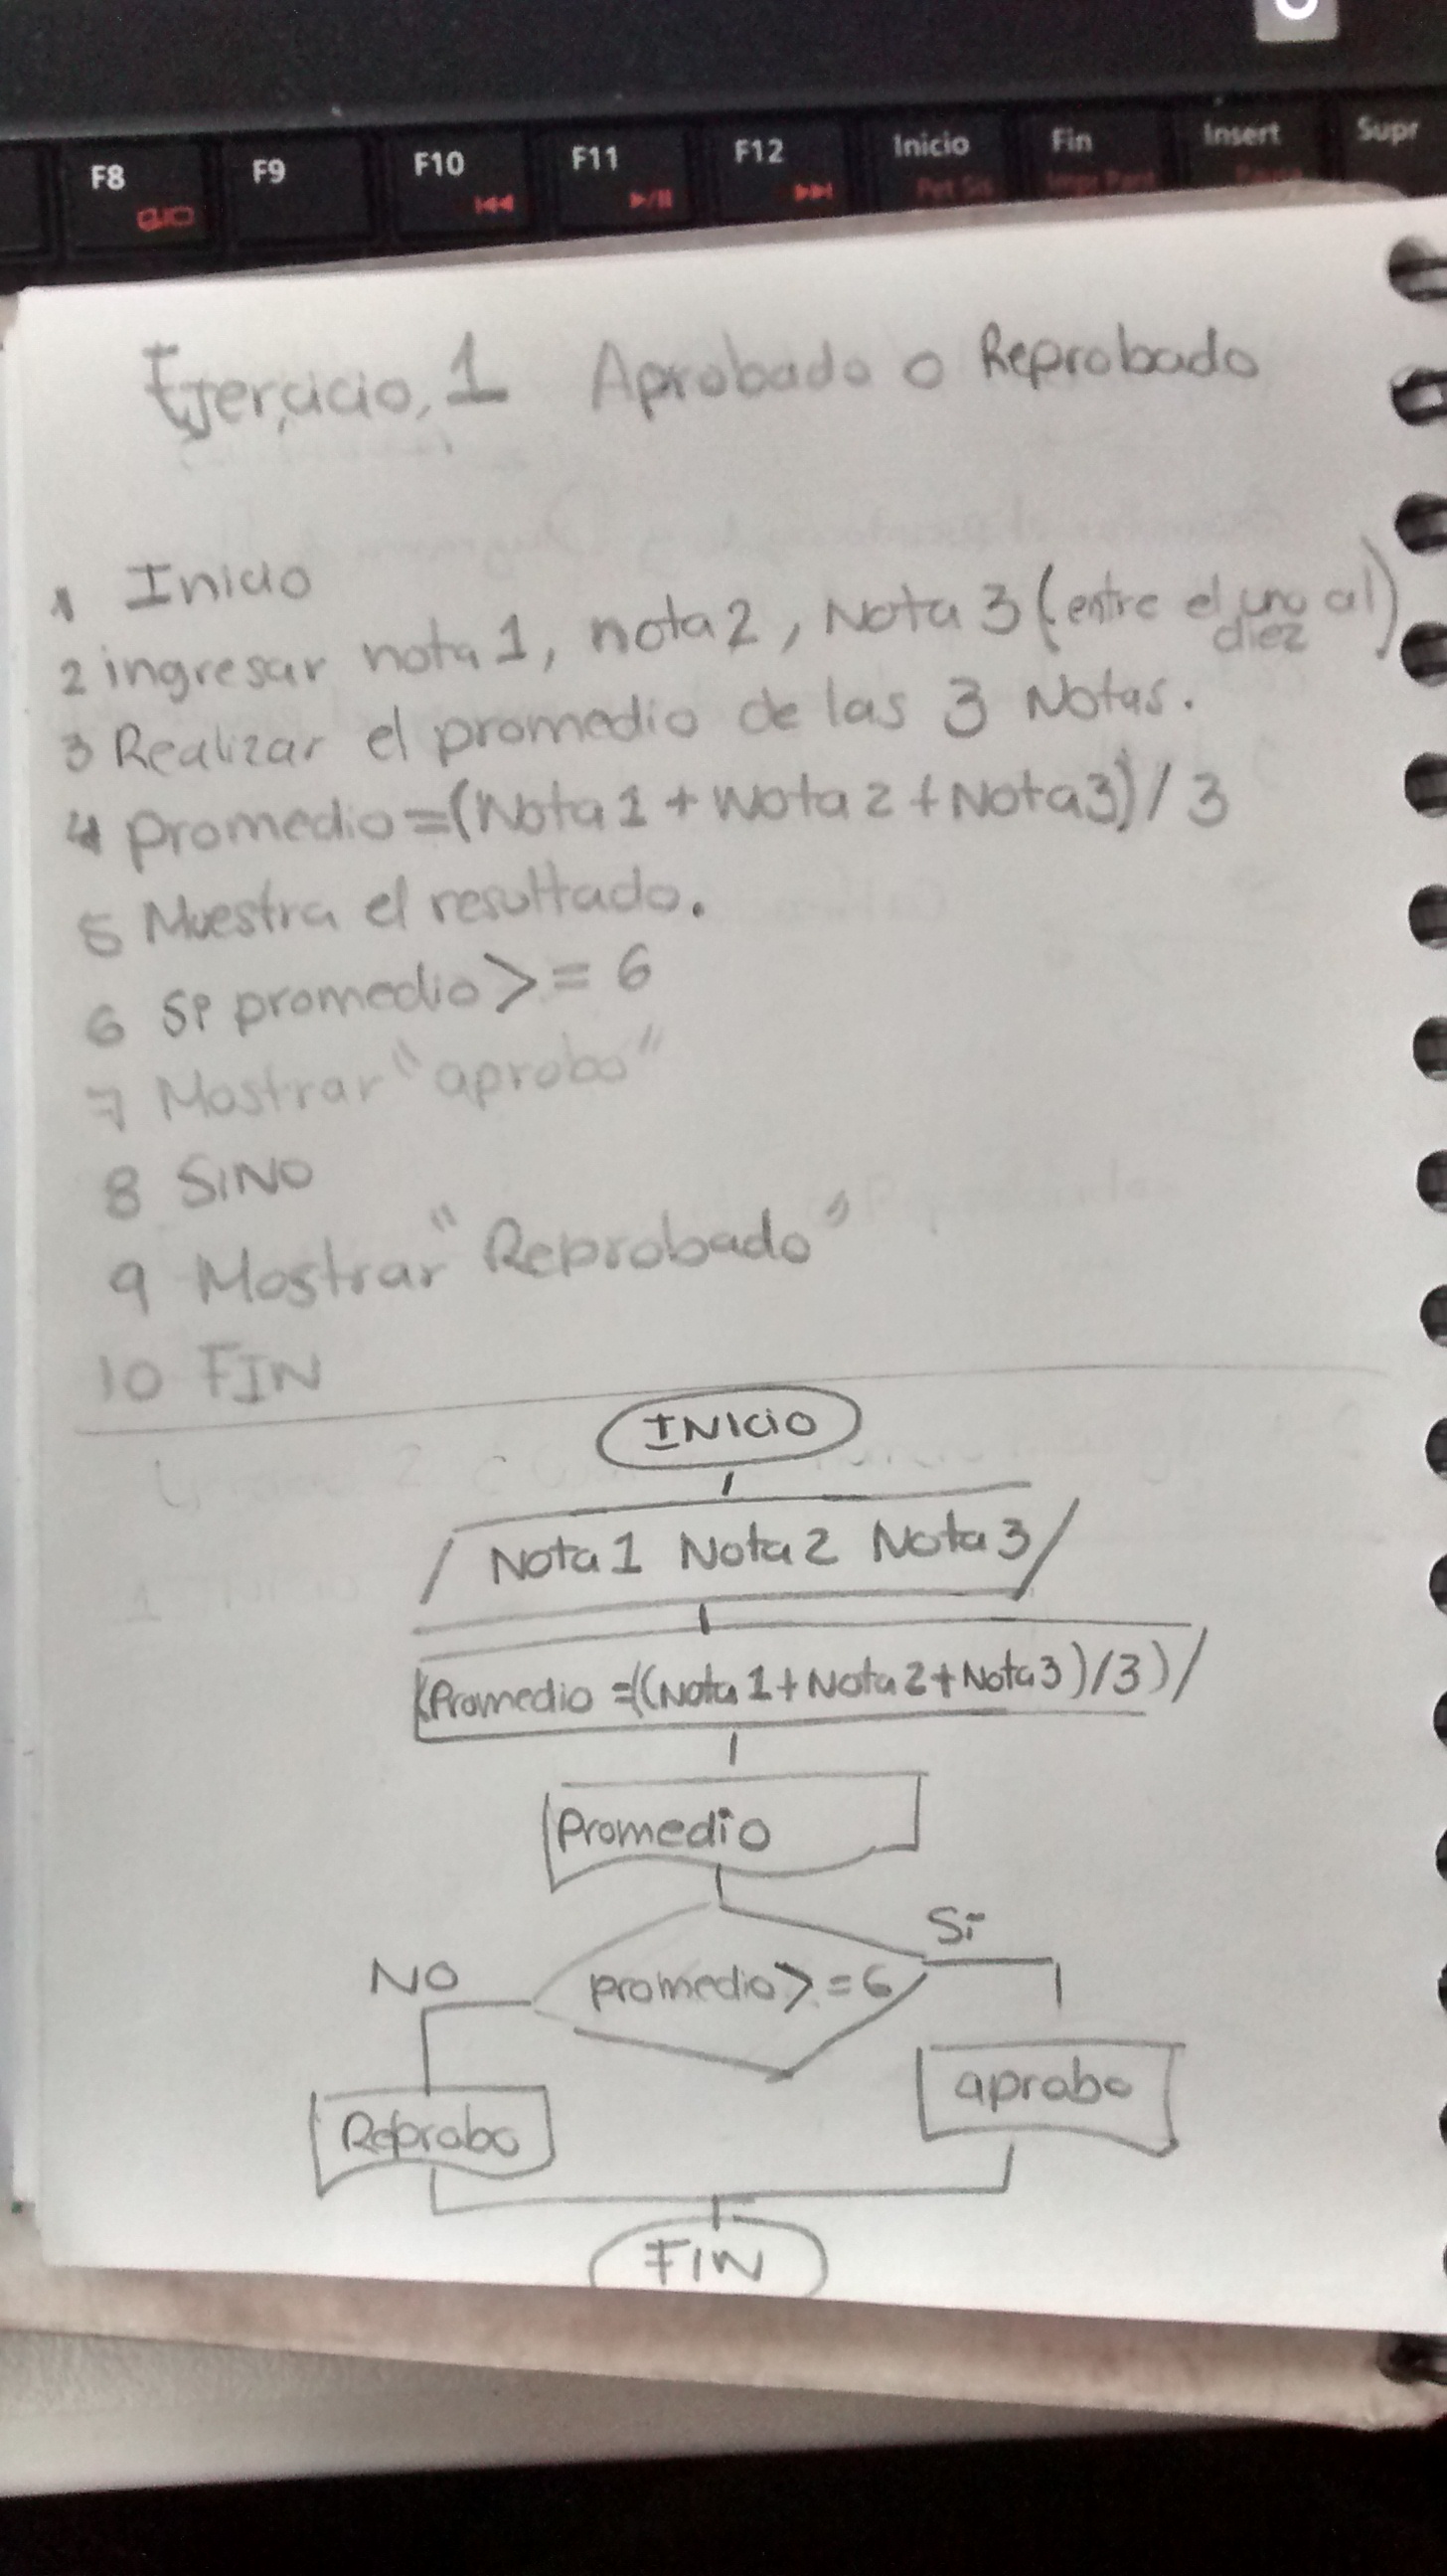 F8 F9 F10 F11 F12 Inicio Fin Insert Supr
Pet Sis Impr Pant Pausa
Ejercicio, 1 Aprobado o Reprobado
1 Inicio
2 ingresar nota 1, nota 2, Nota 3 (entre el uno al diez)
3 Realizar el promedio de las 3 Notas.
4 promedio=(Nota 1 + Nota 2 + Nota3)/ 3
5 Muestra el resultado.
6 Si promedio >= 6
7 Mostrar "aprobo"
8 SINO
9 Mostrar "Reprobado"
10 FIN
INICIO
Nota 1 Nota 2 Nota 3
(Promedio =((Nota 1 + Nota 2 + Nota 3)/3)
Promedio
Si
NO
promedio >= 6
aprobo
Reprobo
FIN